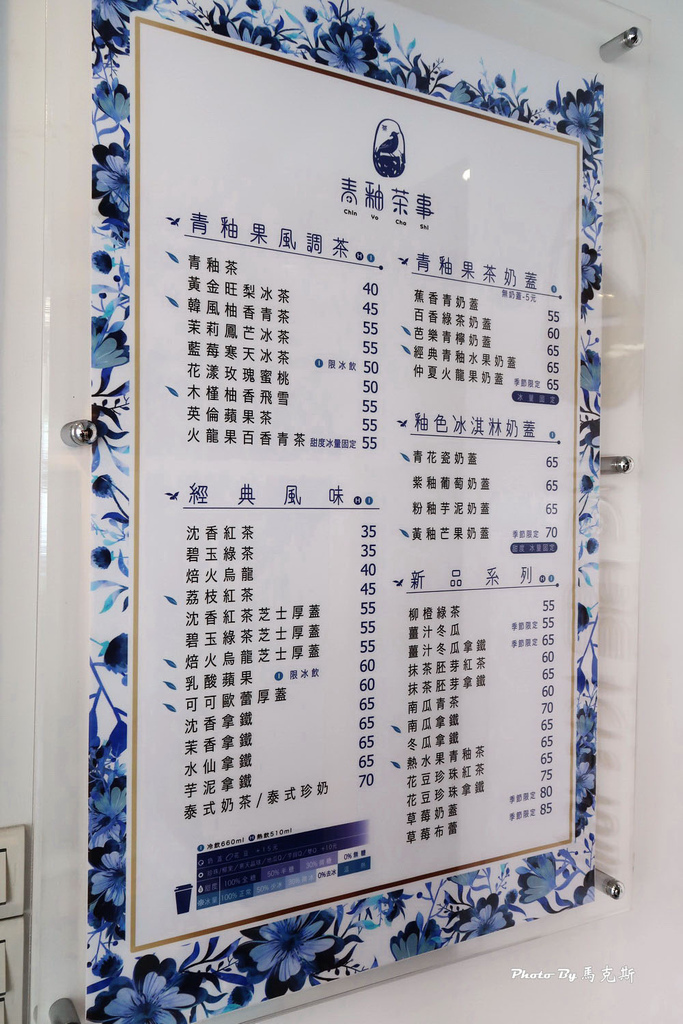 青釉茶事
Chin Yo Cha Shi
青釉果風調茶 H I
青釉茶 40
黃金旺梨冰茶 45
韓風柚香青茶 55
茉莉鳳芒冰茶 55
藍莓寒天冰茶 I 限冰飲 50
花漾玫瑰蜜桃 50
木槿柚香飛雪 55
英倫蘋果茶 55
火龍果百香青茶 甜度冰量固定 55
經典風味 H I
沈香紅茶 35
碧玉綠茶 35
焙火烏龍 40
荔枝紅茶 45
沈香紅茶芝士厚蓋 55
碧玉綠茶芝士厚蓋 55
焙火烏龍芝士厚蓋 55
乳酸蘋果 I 限冰飲 60
可可歐蕾厚蓋 60
沈香拿鐵 65
茉香拿鐵 65
水仙拿鐵 65
芋泥拿鐵 65
泰式奶茶/泰式珍奶 70
I 冷飲660ml H 熱飲510ml
甜度 100%全糖 50%半糖 30%微糖 0%無糖
冰量 100%正常 50%少冰 0%去冰
青釉果茶奶蓋 I
無奶蓋-5元
蕉香青奶蓋 55
百香綠茶奶蓋 60
芭樂青檸奶蓋 65
經典青釉水果奶蓋 65
仲夏火龍果奶蓋 季節限定 65
冰量固定
釉色冰淇淋奶蓋 I
青花瓷奶蓋 65
紫釉葡萄奶蓋 65
粉釉芋泥奶蓋 65
黃釉芒果奶蓋 季節限定 70
甜度 冰量固定
新品系列 H I
柳橙綠茶 55
薑汁冬瓜 季節限定 55
薑汁冬瓜拿鐵 季節限定 65
抹茶胚芽紅茶 60
抹茶胚芽拿鐵 65
南瓜青茶 60
南瓜拿鐵 70
冬瓜拿鐵 65
熱水果青釉茶 65
花豆珍珠紅茶 65
花豆珍珠拿鐵 75
草莓奶蓋 季節限定 80
草莓布蕾 季節限定 85
Photo By 馬克斯